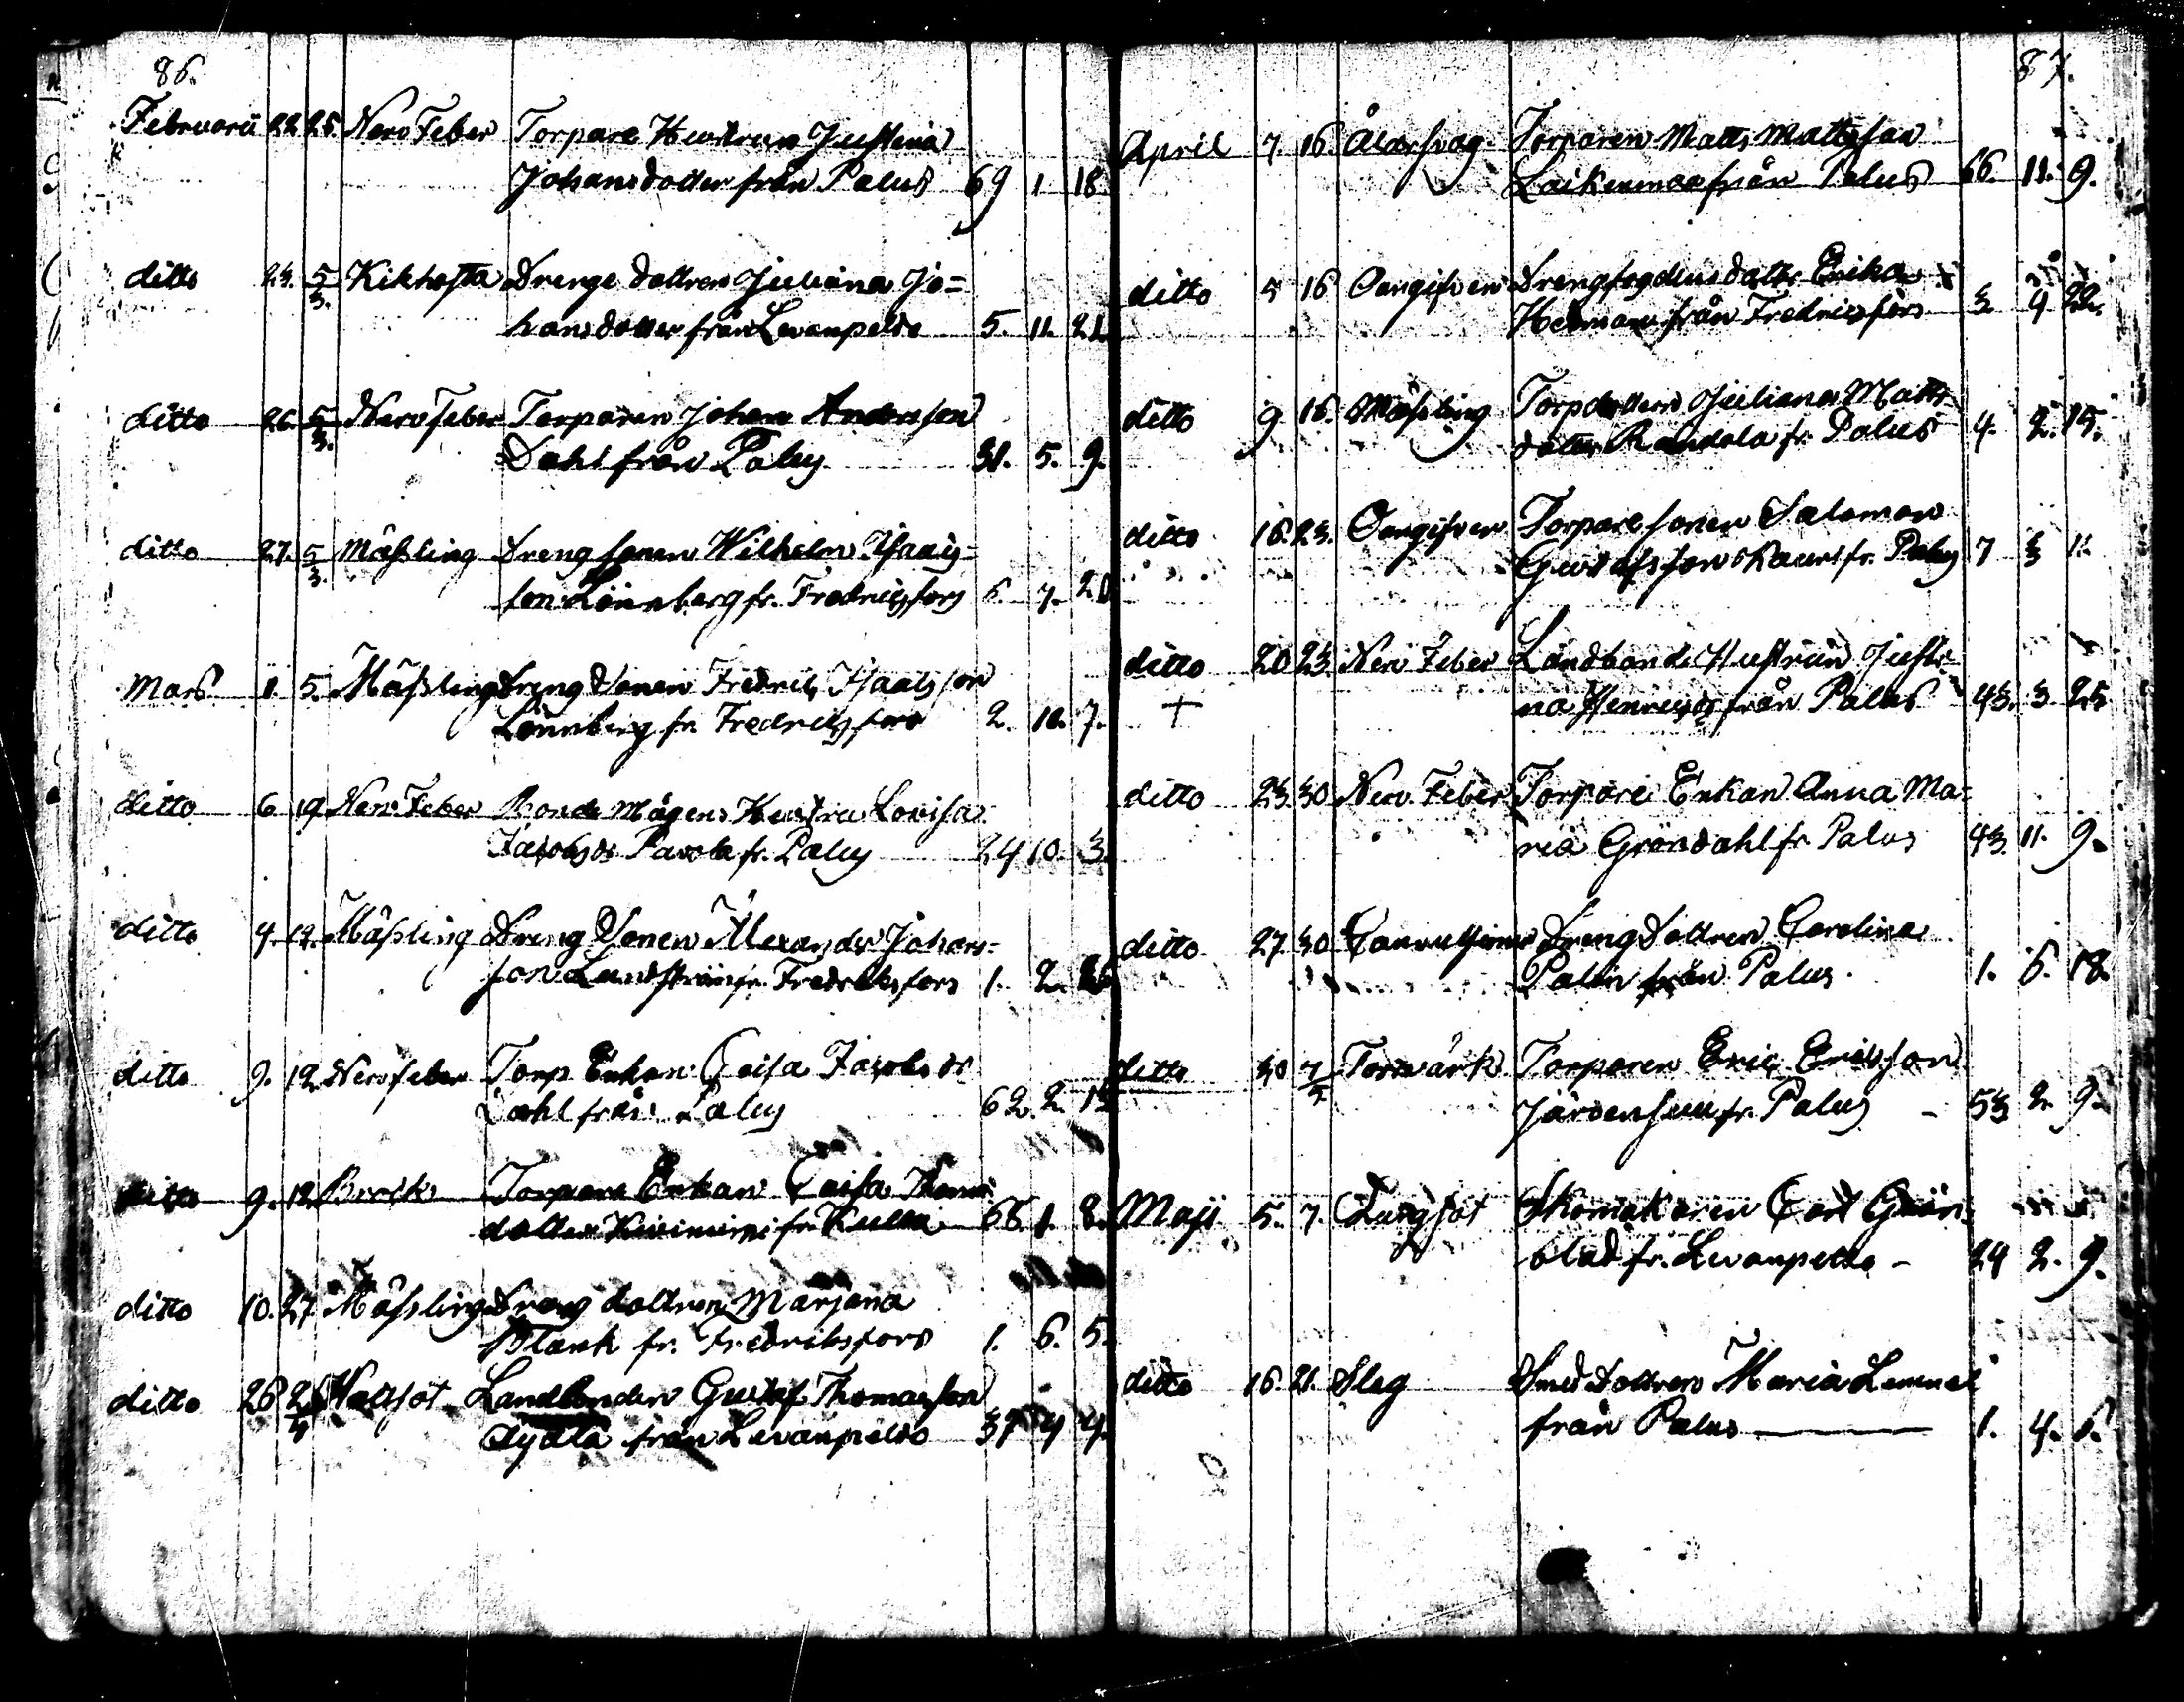 86.
Februarii 22 25. Nerv Feber Torpare Hustrun Justina
Johansdotter från Palus 69 1 18
ditto 23. 5/3. Kikhosta Drenge dottren Juliana Jo=
hansdotter från Levanpeldo 5. 11. 21.
ditto 26. 5/3. Nerv Feber Torparen Johan Andersson
Dahl från Palus 31. 5. 9.
ditto 27. 5/3. Mässling Dreng sonen Wilhelm Isaacs=
son Lönnberg fr. Fredricsfors 6. 7. 20
Mars 1. 5. Mässling Dreng Sonen Fredric Isaacsson
Lönnberg fr. Fredricsfors 2. 10. 7.
ditto 6 19 Nerv Feber Bonde Mågens Hustru Lovisa
Jacobsdr fr. Palus 24 10. 3.
ditto 9. 12. Mässling Dreng Sonen Alexander Johans=
son Lundström fr. Fredriksfors 1. 2.
ditto 9. 12 Nervfeber Torp Enkan Caisa Jacobsdr
Dahl från Palus 62. 2.
ditto 9. 12. Bråck Torpare Enkan Caisa Thomas
dotter fr. Kulla 66 1. 8.
ditto 10. 27 Mässling Dreng dottren Marjana
Blank fr. Fredriksfors 1. 6. 5.
ditto 26 Wattsot Landbonden Gustaf Thomasson
från Levanpeldo 37 4 4.
87.
April 7. 16. Ålderswag Torparen Matts Mattsson
från Palus 66. 11. 9.
ditto 5 16 Oangifven Drengfogdens dottr Erika
Hedman från Fredricsfors 3. 9 22.
ditto 9 16. Mässling Torpdottern Juliana Matts
dotter Randala fr. Palus 4. 2. 15.
ditto 16. 23. Oangifven Torpare sonen Salomon
Gustafsson fr. Palus 7 11.
ditto 20 23 Nerv Feber Landbonde Hustrun Justi=
na Henricsdr från Palus 43. 3 25
+
ditto 23 30 Nerv. Feber Torpare Enkan Anna Ma=
ria Gröndahl fr. Palus 43. 11. 9.
ditto 27 30 Dreng Dottren Carolina
Palén från Palus. 1. 6. 18.
ditto 30 Torrvärk Torparen Eric Ericsson
Järvensuu fr. Palus - 53 2. 9.
Maji 5. 7. Lungsot Skomakaren Carl Grön=
blad fr. Levanpeldo - 24 2. 9.
ditto 16. 21. Slag Smed Dottren Maria
från Palus 1. 4. 6.